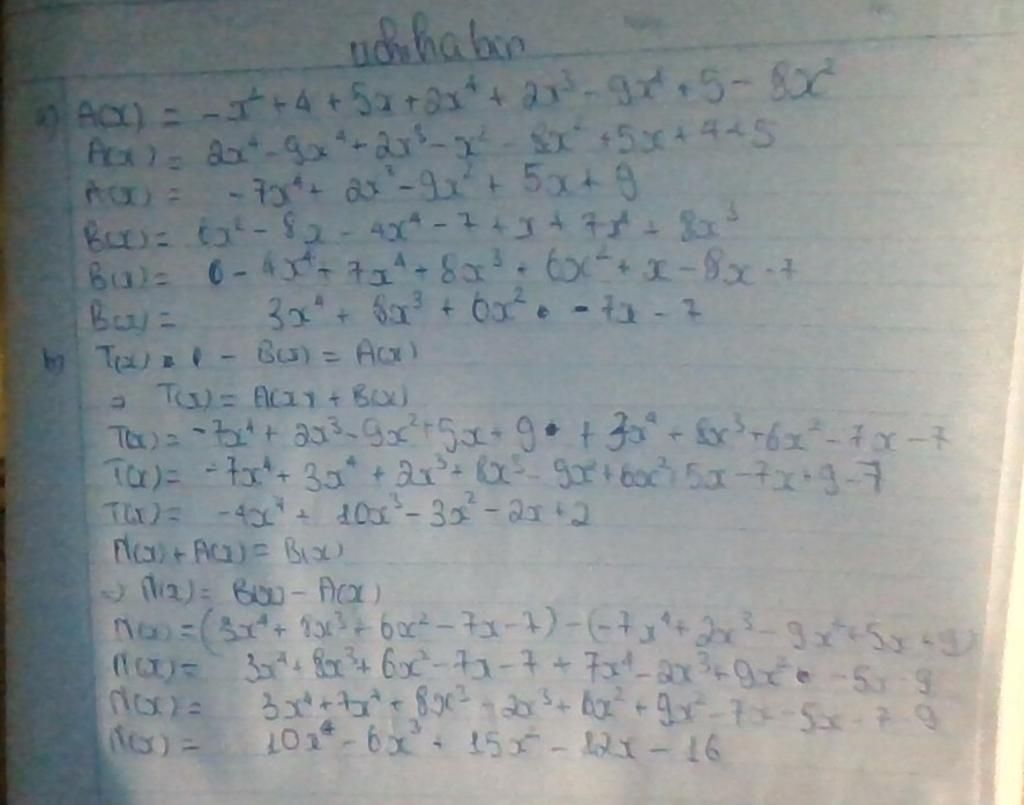 uchihabin
a) A(x) = -x² + 4 + 5x + 2x⁴ + 2x³ - 9x⁴ + 5 - 8x²
A(x) = 2x⁴ - 9x⁴ + 2x³ - x² - 8x² + 5x + 4 + 5
A(x) = -7x⁴ + 2x³ - 9x² + 5x + 9
B(x) = 6x² - 8x - 4x⁴ - 7 + x + 7x⁴ + 8x³
B(x) = - 4x⁴ + 7x⁴ + 8x³ + 6x² + x - 8x - 7
B(x) = 3x⁴ + 8x³ + 6x² - 7x - 7
b) T(x) - B(x) = A(x)
⇒ T(x) = A(x) + B(x)
T(x) = -7x⁴ + 2x³ - 9x² + 5x + 9 + 3x⁴ + 8x³ + 6x² - 7x - 7
T(x) = -7x⁴ + 3x⁴ + 2x³ + 8x³ - 9x² + 6x² + 5x - 7x + 9 - 7
T(x) = -4x⁴ + 10x³ - 3x² - 2x + 2
M(x) + A(x) = B(x)
⇒ M(x) = B(x) - A(x)
M(x) = (3x⁴ + 8x³ + 6x² - 7x - 7) - (-7x⁴ + 2x³ - 9x² + 5x + 9)
M(x) = 3x⁴ + 8x³ + 6x² - 7x - 7 + 7x⁴ - 2x³ + 9x² - 5x - 9
M(x) = 3x⁴ + 7x⁴ + 8x³ - 2x³ + 6x² + 9x² - 7x - 5x - 7 - 9
M(x) = 10x⁴ - 6x³ + 15x² - 12x - 16